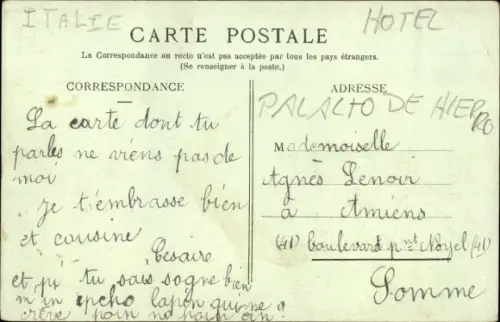 ITALIE
HOTEL
CARTE POSTALE
La Correspondance au recto n'est pas acceptée par tous les pays étrangers.
(Se renseigner à la poste.)
CORRESPONDANCE
ADRESSE
PALALTO DE HIERRO
La carte dont tu
parles ne viens pas de
moi
Je t'embrasse bien
et cousine
Cesaire
et pi tu sais sogne bien
m'in lapin qui ne
crève
Mademoiselle
Agnès Lenoir
à Amiens
(41) boulevard pnt Noyel (41)
Somme